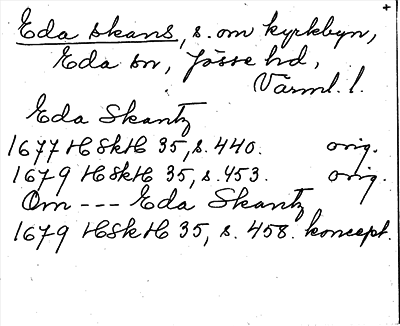 Eda skans, s. om kyrkbyn,
Eda sn, Jösse hd,
Värml. l.
Eda Skantz
1677 HSkH 35, s. 440. orig.
1679 HSkH 35, s. 453. orig.
Om --- Eda Skantz
1679 HSkH 35, s. 458. koncept.